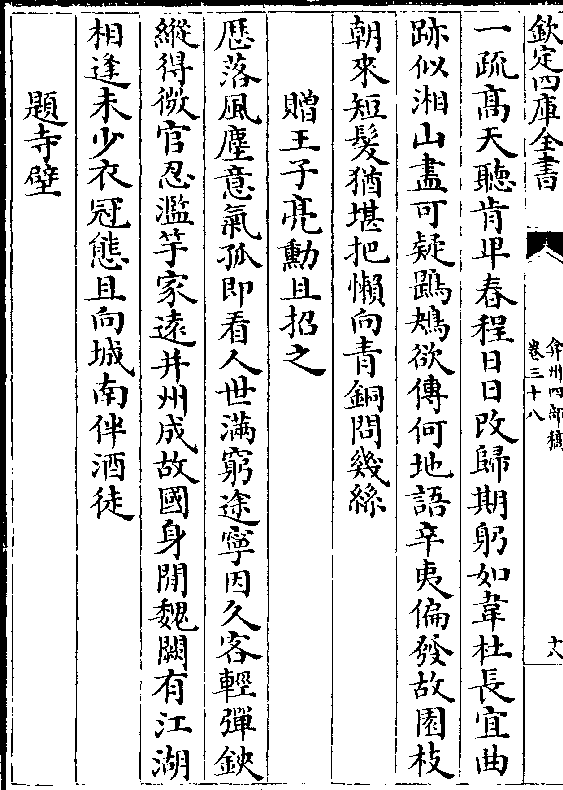 欽定四庫全書
弇州四部稿
卷三十八
十六
一疏髙天聽肯卑春程日日改歸期躬如韋杜長宜曲
跡似湘山盡可疑鷓鴣欲傳何地語辛夷偏發故園枝
朝來短髮猶堪把懶向青銅問幾絲
贈王子亮勳且招之
歴落風塵意氣孤即看人世滿窮途寧因久客輕彈鋏
縱得微官忍濫竽家遠并州成故國身閒魏闕有江湖
相逢未少衣冠態且向城南伴酒徒
題寺壁